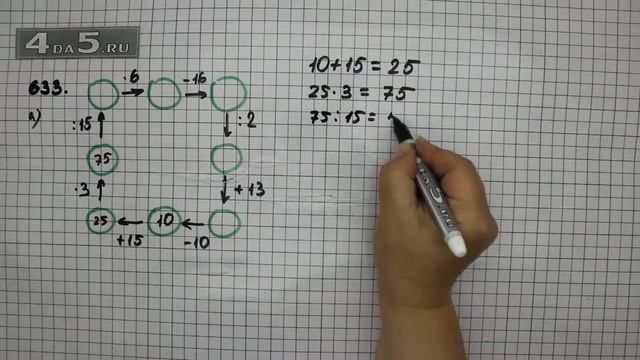 4DA5.RU
633.
а)
·6
-16
:2
+13
-10
10
+15
25
·3
75
:15
10+15=25
25·3=75
75:15=
4DA5.RU